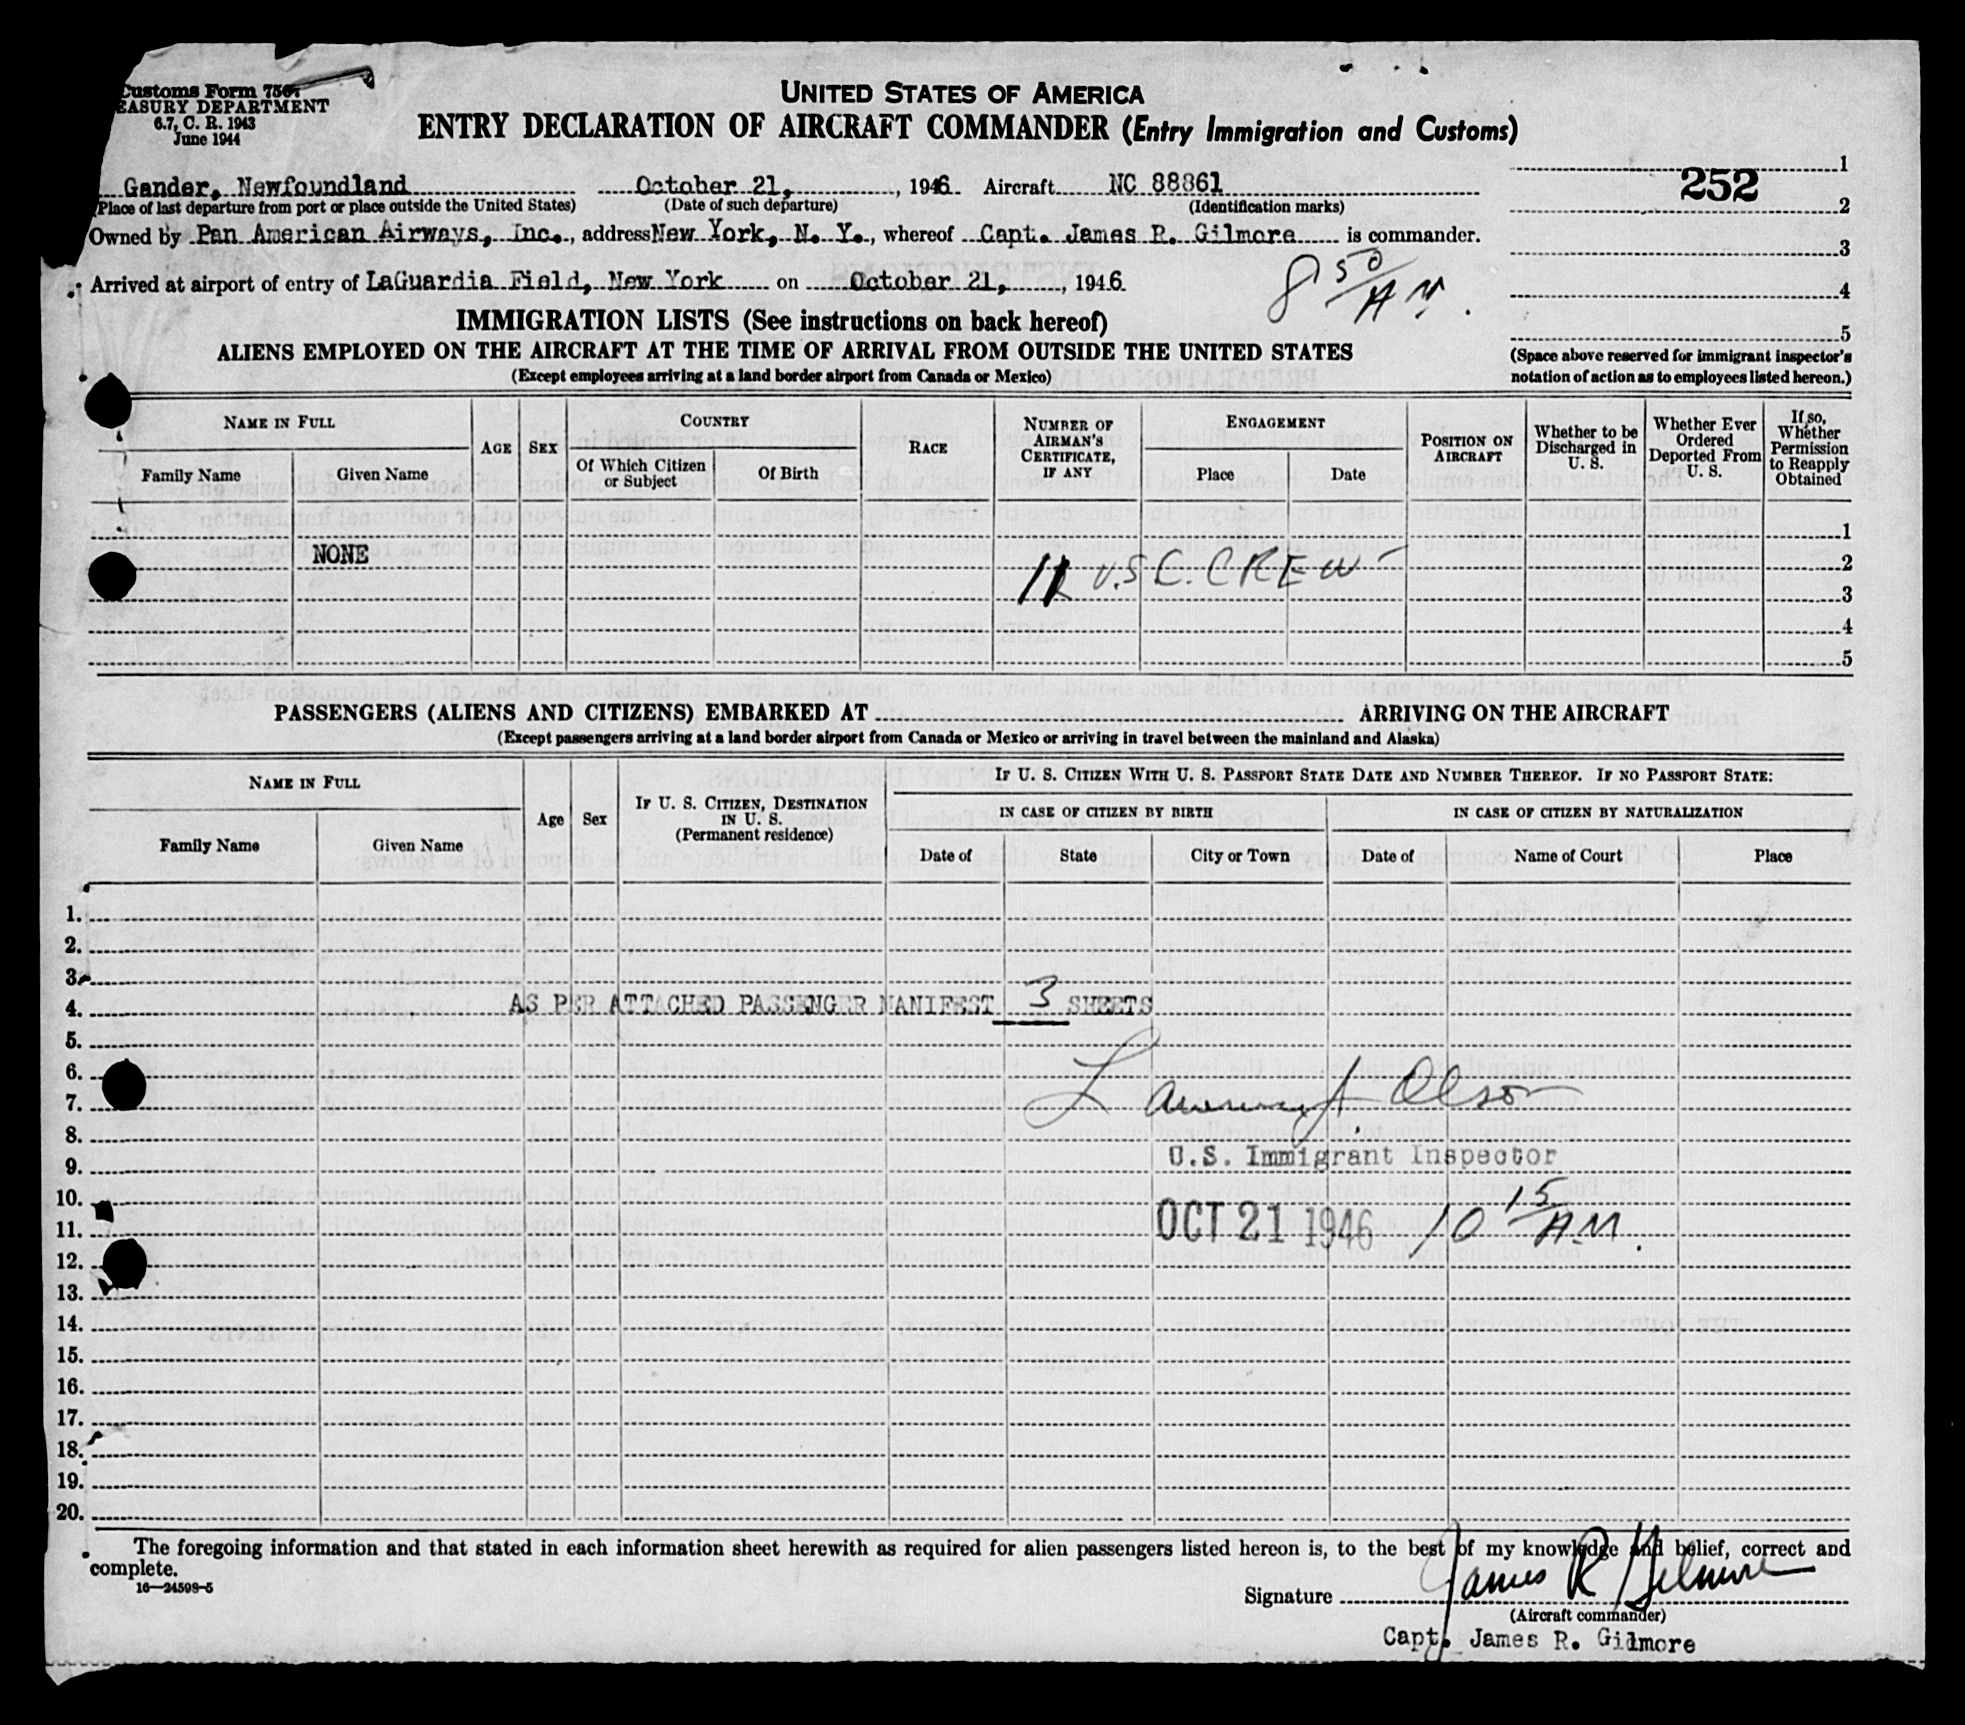 Customs Form 7507
EASURY DEPARTMENT
6.7, C. R. 1943
June 1944
UNITED STATES OF AMERICA
ENTRY DECLARATION OF AIRCRAFT COMMANDER (Entry Immigration and Customs)
Gander, Newfoundland October 21, 1946 Aircraft NC 88861
(Place of last departure from port or place outside the United States) (Date of such departure) (Identification marks)
Owned by Pan American Airways, Inc., address New York, N. Y., whereof Capt. James R. Gilmore is commander.
Arrived at airport of entry of LaGuardia Field, New York on October 21, 1946
8 50 AM.
252
1
2
3
4
5
(Space above reserved for immigrant inspector's
notation of action as to employees listed hereon.)
IMMIGRATION LISTS (See instructions on back hereof)
ALIENS EMPLOYED ON THE AIRCRAFT AT THE TIME OF ARRIVAL FROM OUTSIDE THE UNITED STATES
(Except employees arriving at a land border airport from Canada or Mexico)
NAME IN FULL
Family Name
Given Name
AGE
SEX
COUNTRY
Of Which Citizen
or Subject
Of Birth
RACE
NUMBER OF
AIRMAN'S
CERTIFICATE,
IF ANY
ENGAGEMENT
Place
Date
POSITION ON
AIRCRAFT
Whether to be
Discharged in
U. S.
Whether Ever
Ordered
Deported From
U. S.
If so,
Whether
Permission
to Reapply
Obtained
1
NONE 2
11 U.S C. CREW
3
4
5
PASSENGERS (ALIENS AND CITIZENS) EMBARKED AT ARRIVING ON THE AIRCRAFT
(Except passengers arriving at a land border airport from Canada or Mexico or arriving in travel between the mainland and Alaska)
NAME IN FULL
Family Name
Given Name
Age
Sex
IF U. S. CITIZEN, DESTINATION
IN U. S.
(Permanent residence)
IF U. S. CITIZEN WITH U. S. PASSPORT STATE DATE AND NUMBER THEREOF. IF NO PASSPORT STATE:
IN CASE OF CITIZEN BY BIRTH
IN CASE OF CITIZEN BY NATURALIZATION
Date of
State
City or Town
Date of
Name of Court
Place
1.
2.
3.
4. AS PER ATTACHED PASSENGER MANIFEST 3 SHEETS
5.
6.
7. J. Olson
8.
9. U.S. Immigrant Inspector
10.
11. OCT 21 1946 10 15 A.M.
12.
13.
14.
15.
16.
17.
18.
19.
20.
The foregoing information and that stated in each information sheet herewith as required for alien passengers listed hereon is, to the best of my knowledge and belief, correct and
complete.
16—24598-5
Signature James R Gilmore
(Aircraft commander)
Capt. James R. Gilmore